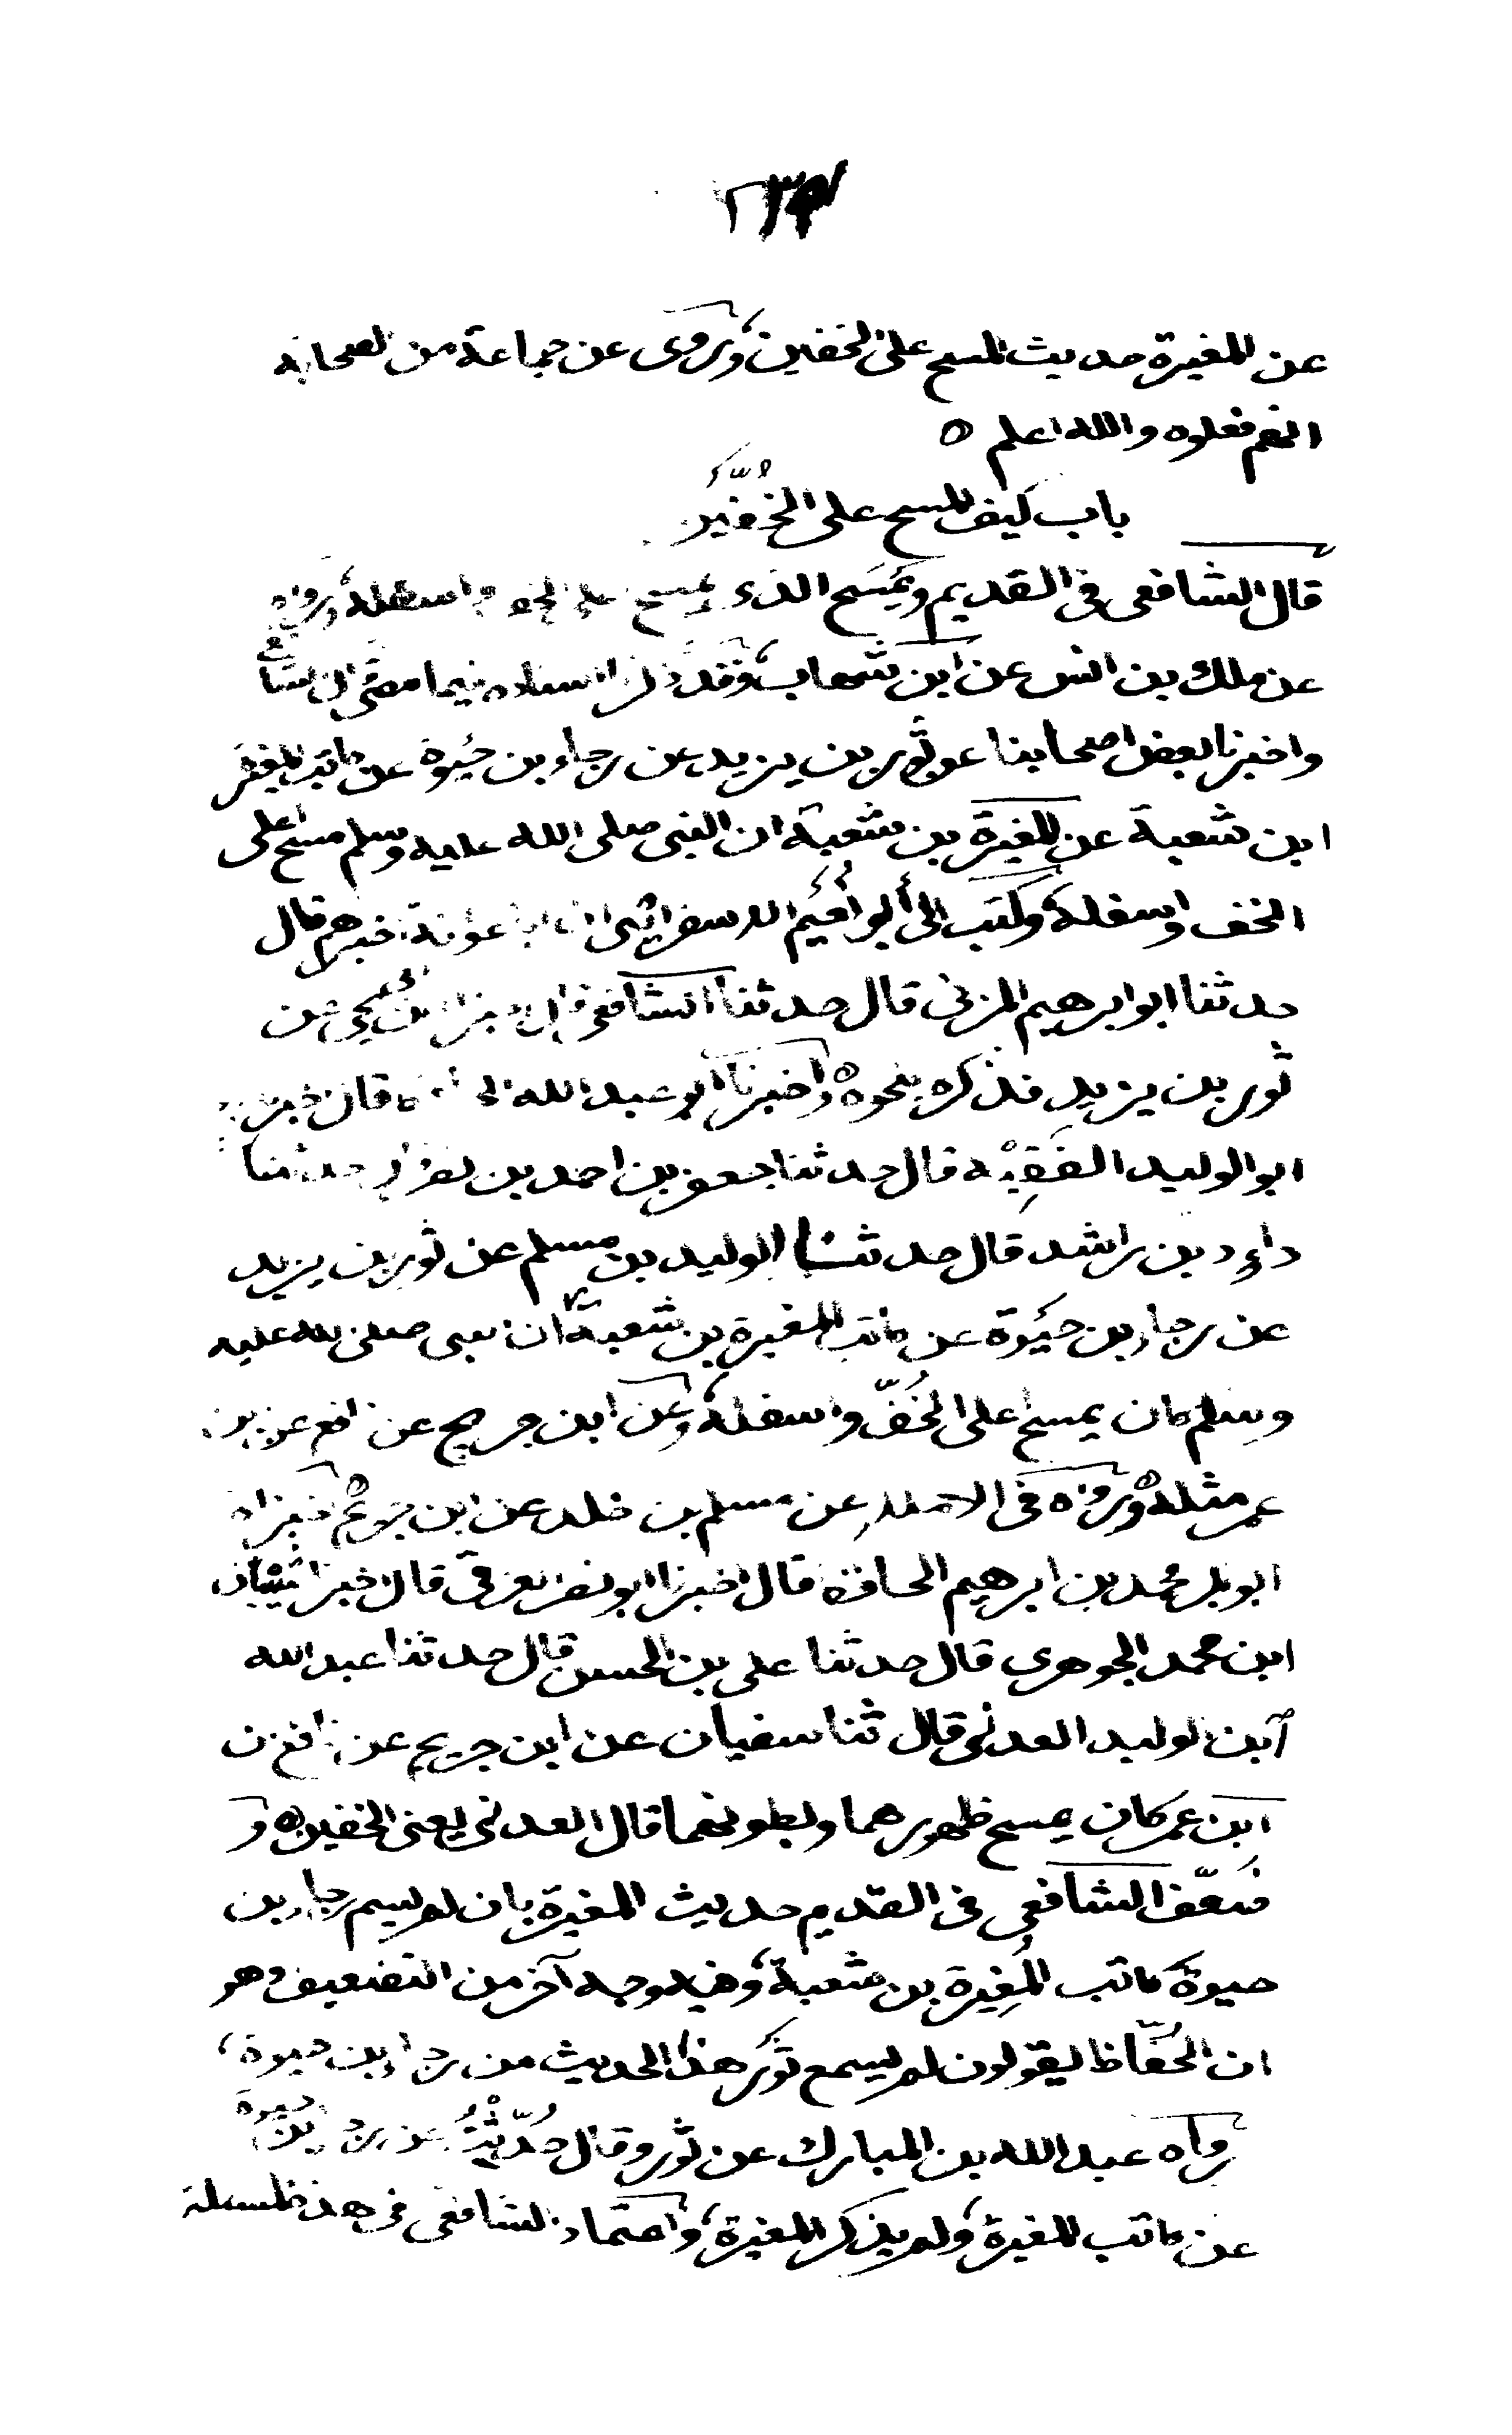 عن المغيرة حديث المسح على الخفين وروى عن جماعة من الصحابة
انهم فعلوه والله اعلم ه
باب كيف المسح على الخُفَّين
قال الشافعي في القديم ويمسَح الذي يمسح على الخف واسفله ورواه
عن ملك بن انس عن ابن شهاب وقد ذكرنا اسناده فيما مضى قال الشافعي
واخبرنا بعض اصحابنا عن ثور بن يزيد عن رجاء بن حَيْوة عن كاتب المغيرة
ابن شعبة عن المغيرة بن شعبة ان النبي صلى الله عليه وسلم مسح اعلى
الخف واسفله وكتب الى ابو نُعَيم الاسفرائني ان ابا عوانة اخبرهم قال
حدثنا ابو ابرهيم المزني قال حدثنا الشافعي قال اخبرنا ابن ابي يحيى عن
ثور بن يزيد فذكره بنحوه ه واخبرنا ابو عبد الله الحافظ قال اخبرنا
ابو الوليد الفَقِيْه قال حدثنا جعفر بن احمد بن نصر قال حدثنا
داود بن راشد قال حدثنا الوليد بن مسلم عن ثور بن يزيد
عن رجاء بن حَيْوة عن كاتب المغيرة بن شعبة ان النبي صلى الله عليه
وسلم كان يمسح اعلى الخُفّ واسفله وعن ابن جريج عن نافع عن ابن
عمر مثله ه ورواه في الاملاءِ عن مسلم بن خلد عن ابن جريج ه اخبرناه
ابو بكر محمد بن ابرهيم الحافظ قال اخبرنا ابو نصر العراقي قال اخبرنا سفيان
ابن محمد الجوهري قال حدثنا علي بن الحسن قال حدثنا عبد الله
ابن الوليد العدني قال ثنا سفيان عن ابن جريج عن نافع عن
ابن عمر كان يمسح ظهورهما وبطونهما قال العدني يعني الخفين ه و
ضعّف الشافعي في القديم حديث المغيرة بان لم يسم رجاء بن
حيوة كاتب المُغيرة بن شعبة وفيه وجه آخر من التضعيف وهو
ان الحُفّاظ يقولون لم يسمع ثور هذا الحديث من رجاء بن حيوة
رواه عبد الله بن المبارك عن ثور وقال حُدِّثْتُ عن رجاء بن حيوة
عن كاتب المغيرة ولم يذكر المغيرة واعتماد الشافعي في هذه المسئلة